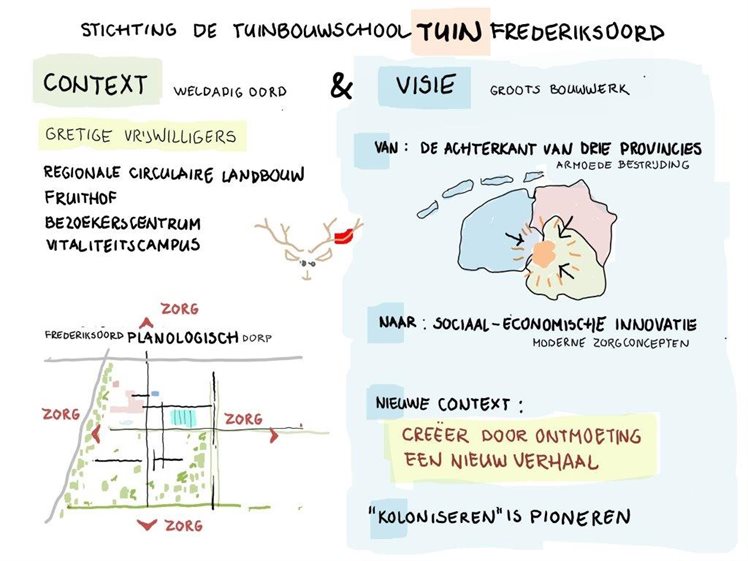 STICHTING DE TUINBOUWSCHOOL TUIN FREDERIKSOORD
CONTEXT WELDADIG OORD & VISIE GROOTS BOUWWERK
GRETIGE VRIJWILLIGERS
REGIONALE CIRCULAIRE LANDBOUW
FRUITHOF
BEZOEKERSCENTRUM
VITALITEITSCAMPUS
ZORG
FREDERIKSOORD PLANOLOGISCH DORP
ZORG
ZORG
ZORG
VAN: DE ACHTERKANT VAN DRIE PROVINCIES
ARMOEDE BESTRIJDING
NAAR: SOCIAAL-ECONOMISCHE INNOVATIE
MODERNE ZORGCONCEPTEN
NIEUWE CONTEXT:
CREËER DOOR ONTMOETING
EEN NIEUW VERHAAL
"KOLONISEREN" IS PIONEREN